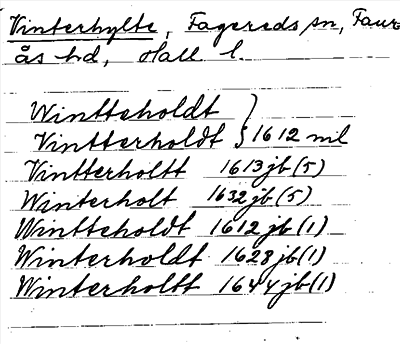 Vinterhylte, Fagereds sn, Faur-
ås hd, Hall l.
Wintteholdt
Vintterholdt } 1612 mil
Vintterholtt 1613 jb (5)
Winterholt 1632 jb (5)
Wintteholdt 1612 jb (1)
Winterholdt 1628 jb (1)
Winterholtt 1644 jb (1)